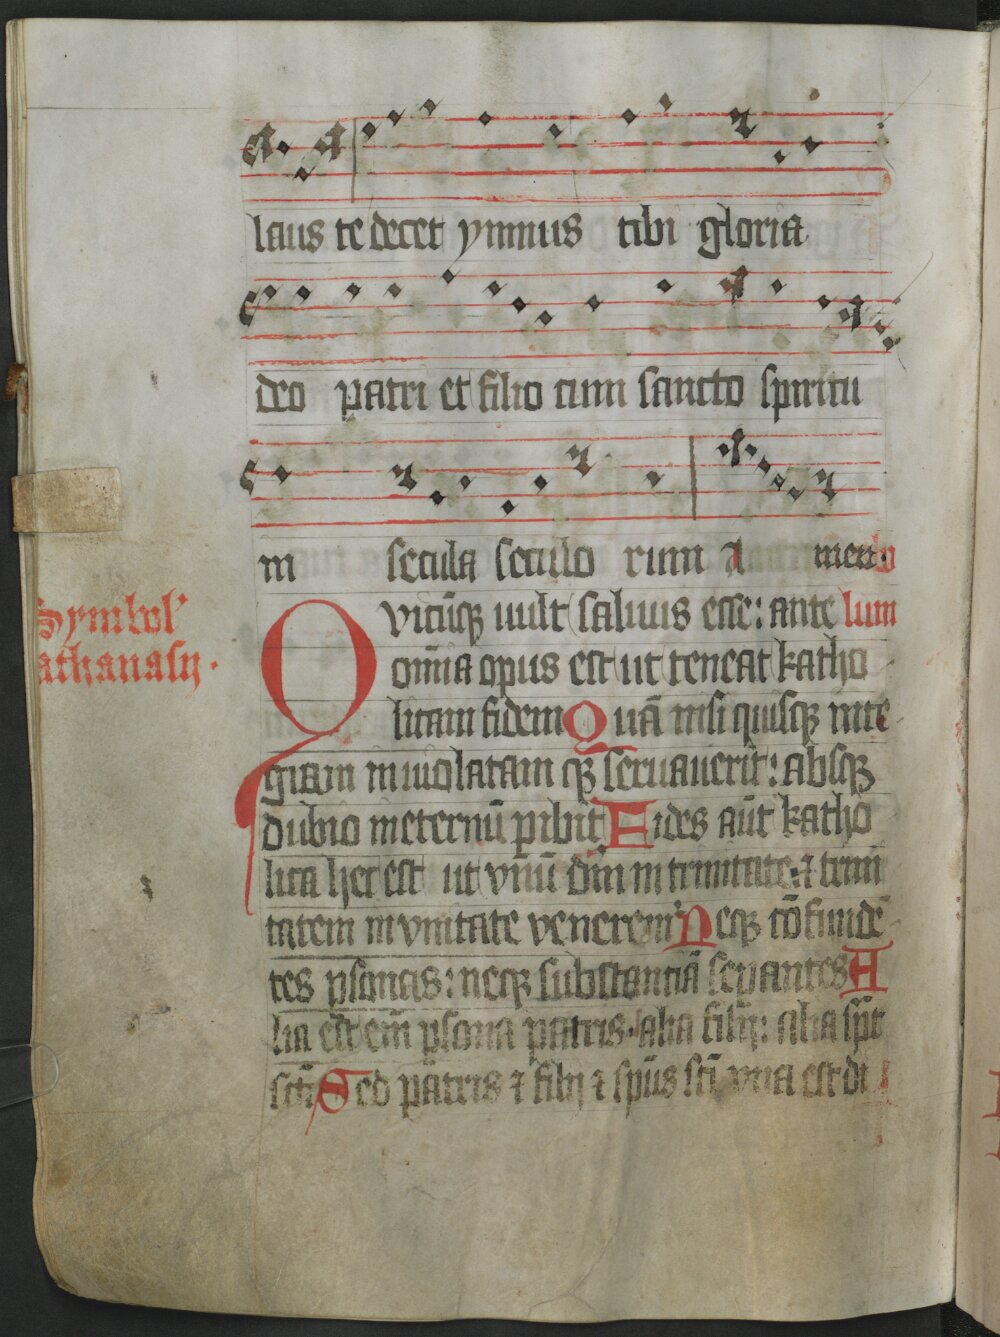 laus te decet ymnus tibi gloria
deo patri et filio cum sancto spiritu
in secula seculo rum A men.
Symbol'
athanasij.
Quicūqꝫ uult saluus esse: ante
om̄ia opus est ut teneat katho
licam fidem Quā nisi quisqꝫ inte
gram inuiolatam qꝫ seruauerit: absqꝫ
dubio ineternū ꝑibit Fides aūt katho
lica hec est ut vnū dm̄ in trinitate: ⁊ trini
tatem in vnitate venerem̄ Neqꝫ cōfundē
tes ꝑsonas: neqꝫ substantiā seꝑantes A
lia est em̄ ꝑsona patris. alia filij: alia spc̄
scī: Sed patris ⁊ filij ⁊ spūs scī vna est di